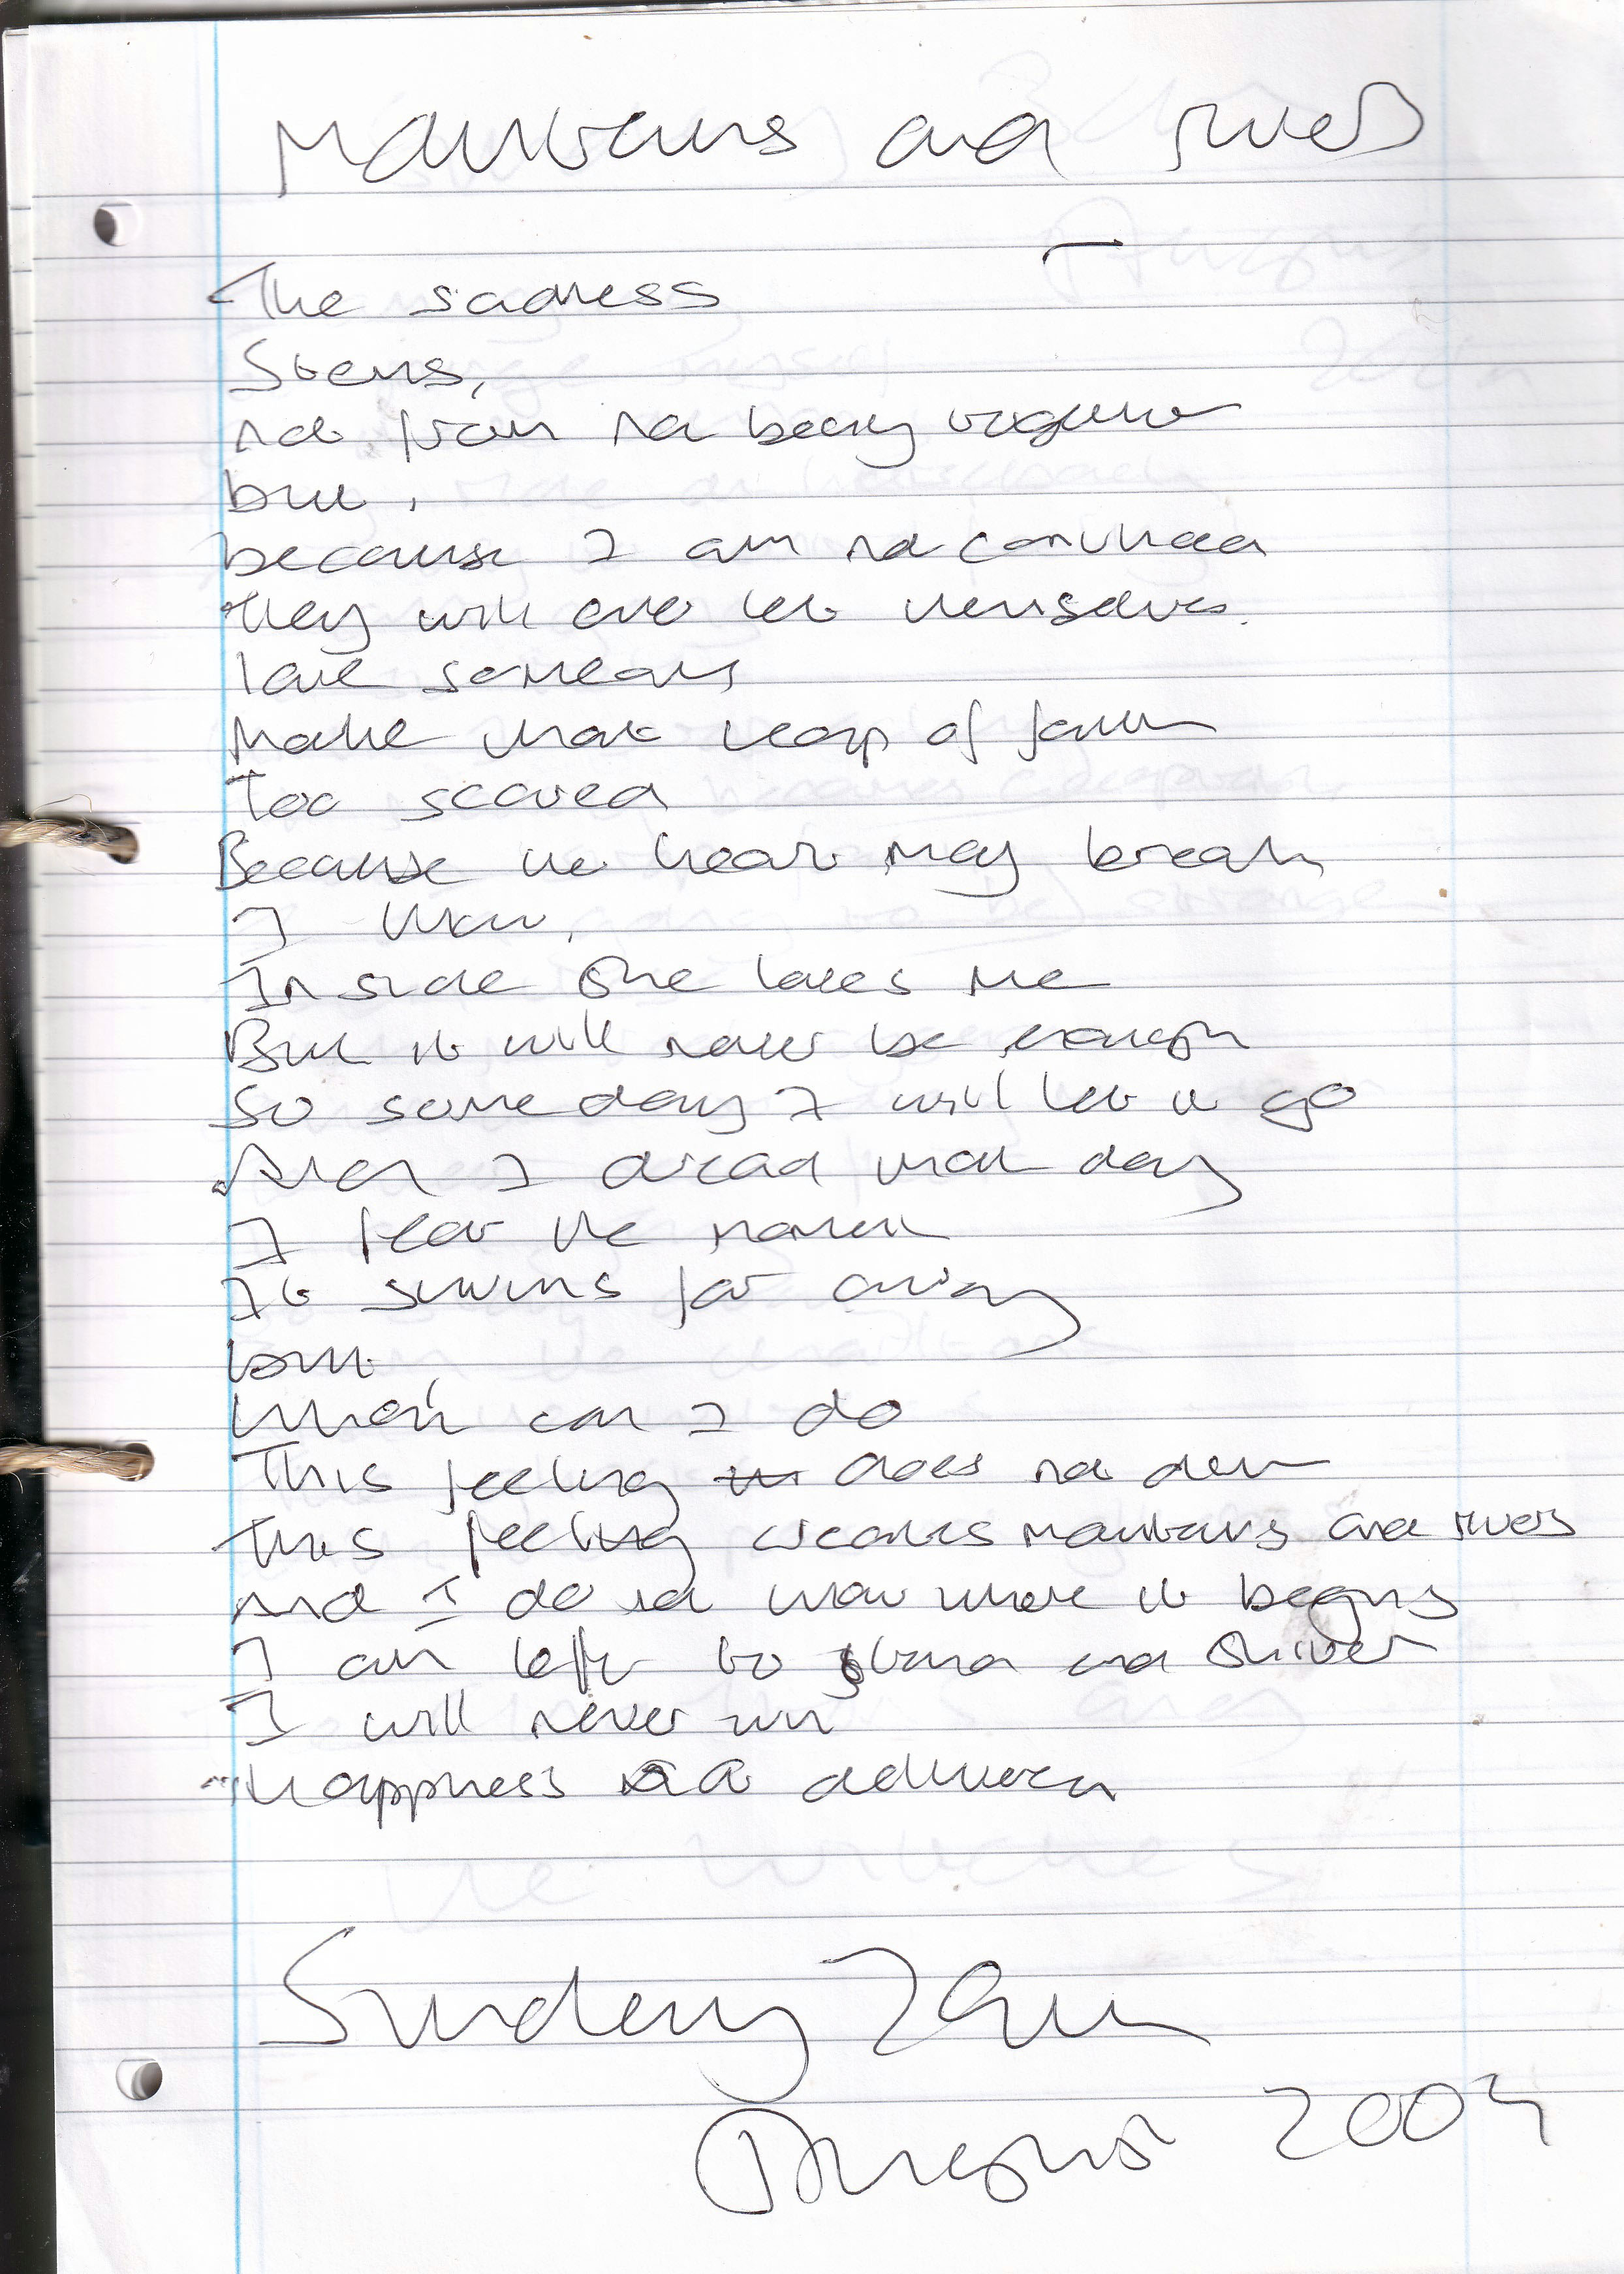 Mountains and rivers
The sadness
Stems,
not from not being together
but,
because I am not convinced
they will ever let themselves.
love someone
Make that leap of faith
Too scared
Because the heart may break
I know,
Inside she loves me
But it will never be enough
So someday I will let it go
And I dread that day
I fear the moment
It seems far away
but,
What can I do
This feeling does not
This feeling creates mountains and rivers
And I do not know where it begins
I am left to stand and shiver
I will never win
Happiness not
Sunday
August 2004